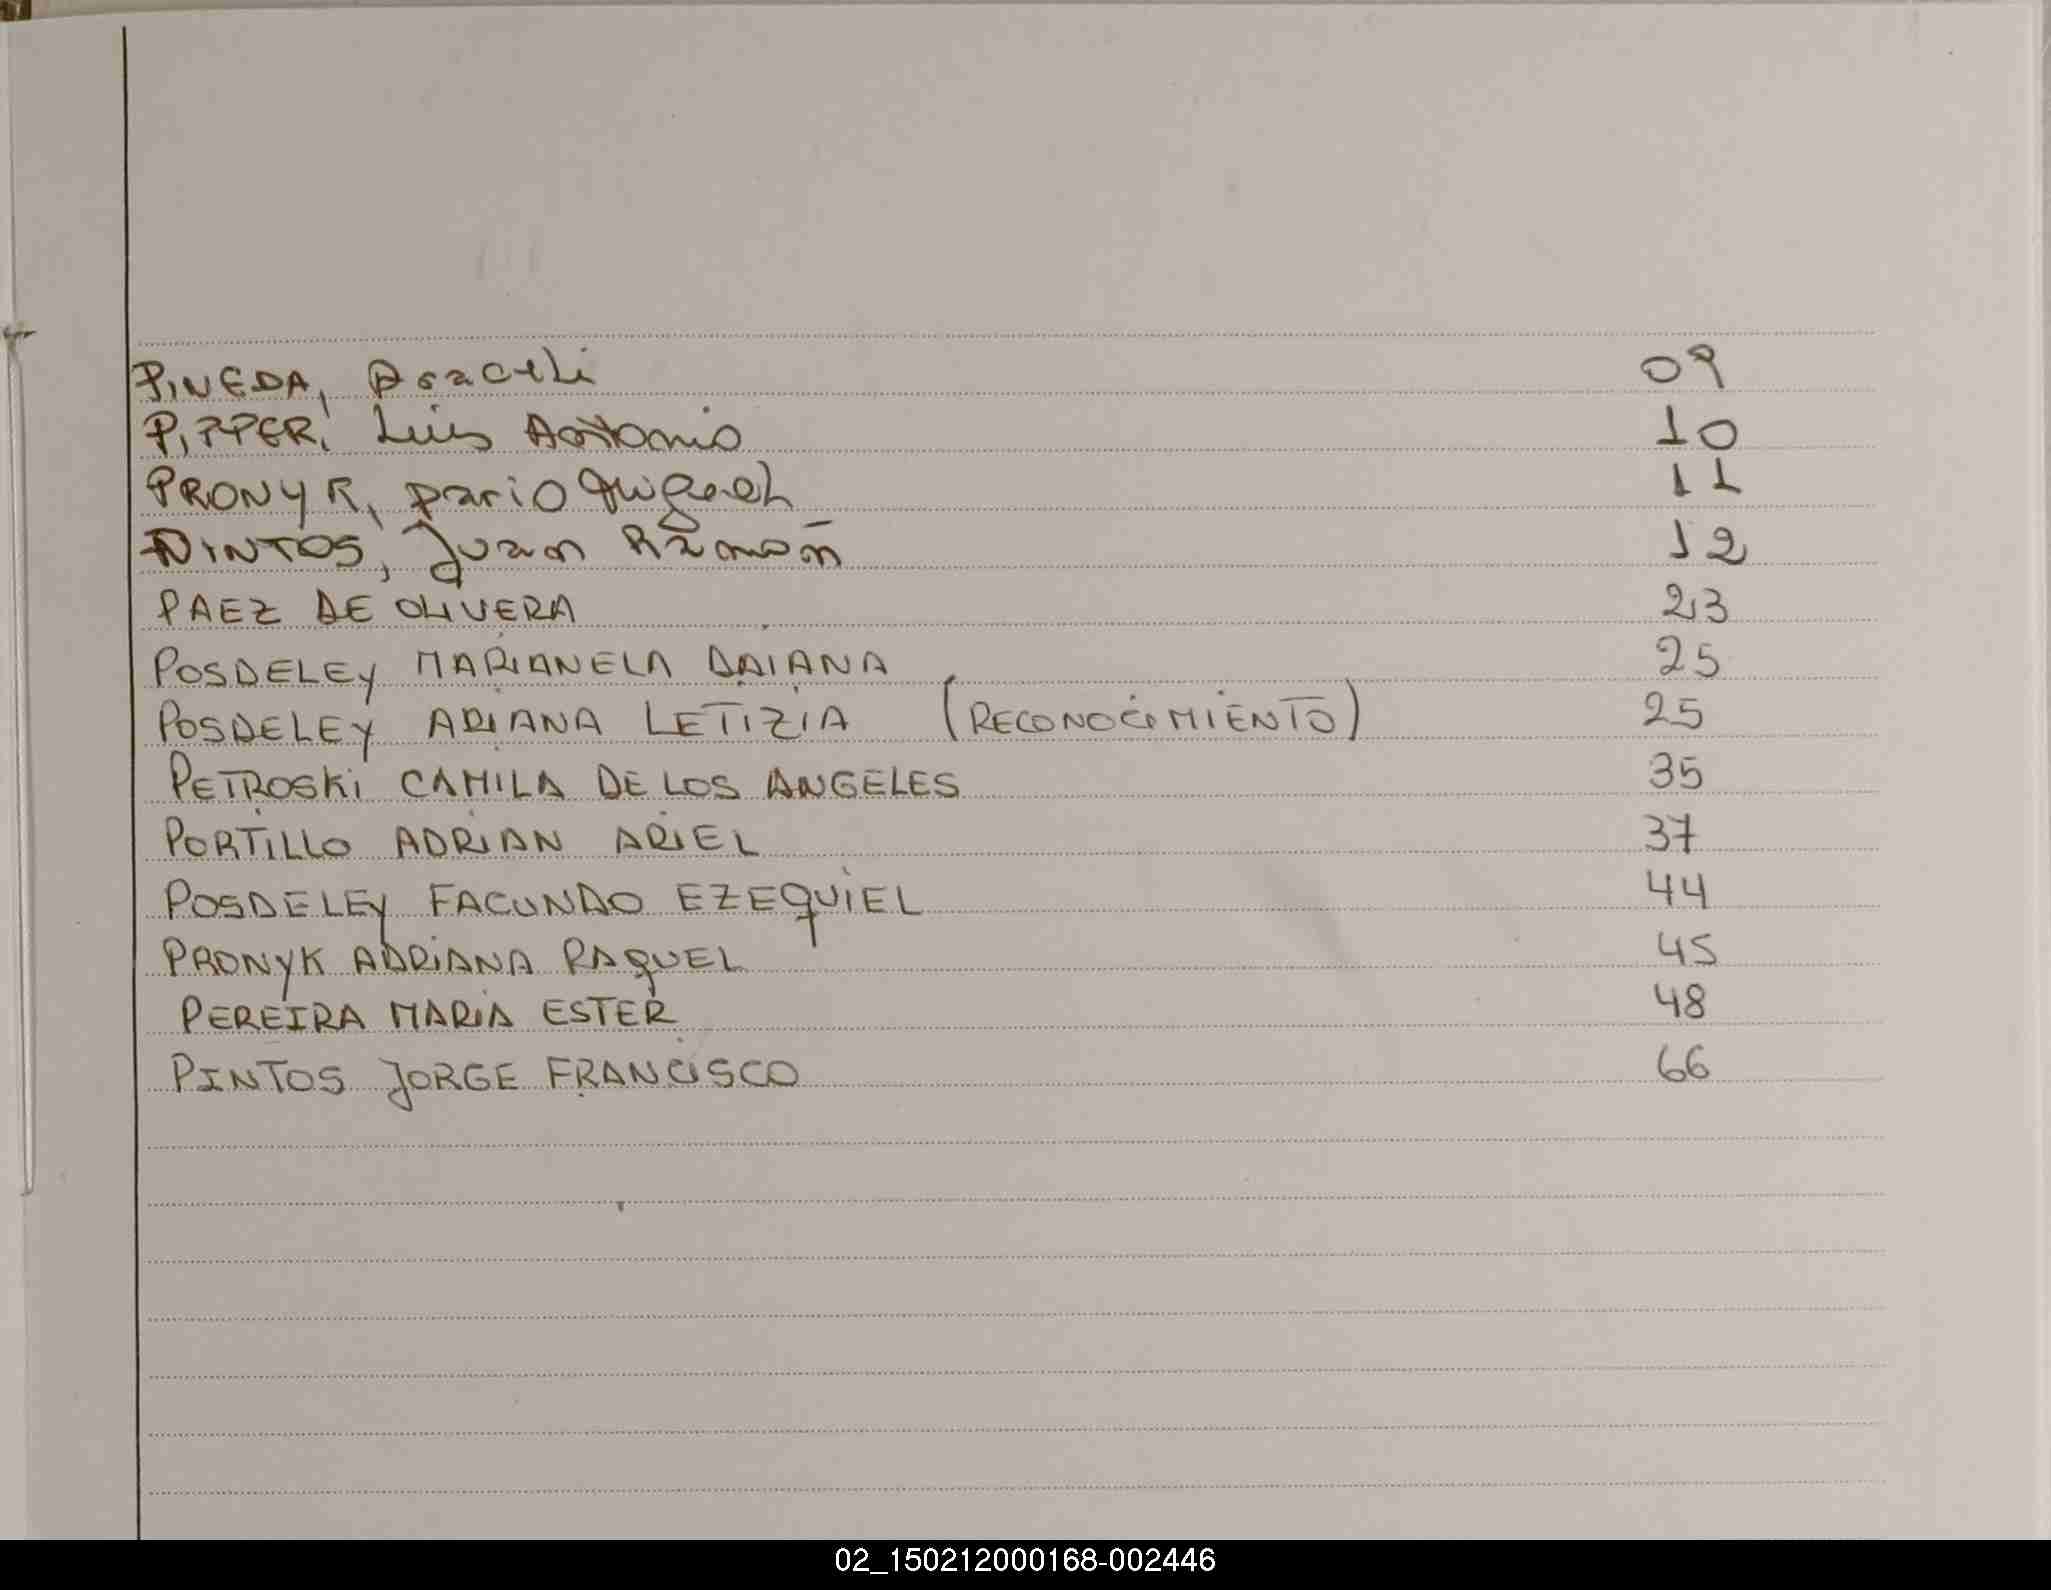 PINEDA, Araceli 09
PIPPER, Luis Antonio 10
PRONYK, Dario 11
PINTOS, Juan Ramón 12
PAEZ DE OLIVERA 23
POSDELEY MARIANELA DAIANA 25
POSDELEY ARIANA LETIZIA (RECONOCIMIENTO) 25
PETROSKI CAMILA DE LOS ANGELES 35
PORTILLO ADRIAN ARIEL 37
POSDELEY FACUNDO EZEQUIEL 44
PRONYK ADRIANA RAQUEL 45
PEREIRA MARIA ESTER 48
PINTOS JORGE FRANCISCO 66
02_150212000168-002446